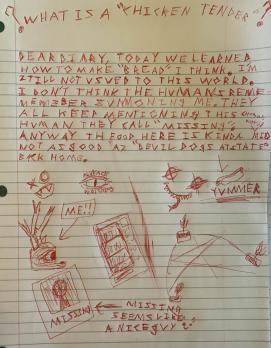 ? WHAT IS A "CHICKEN TENDER" ?
DEAR DIARY, TODAY WE LEARNED
HOW TO MAKE "BREAD" I THINK. I'M
STILL NOT USED TO THIS WORLD.
I DON'T THINK THE HUMANS REME-
MEMBER SUMMONING ME. THEY
ALL KEEP MENTIONING THIS
HUMAN THEY CALL "MISSING".
ANYWAY THE FOOD HERE IS KINDA MID
NOT AS GOOD AS "DEVIL DOGS
BACK HOME.
ME!!
YUMMER
MISSING
MISSING
SEEMS LIKE
A NICE GUY